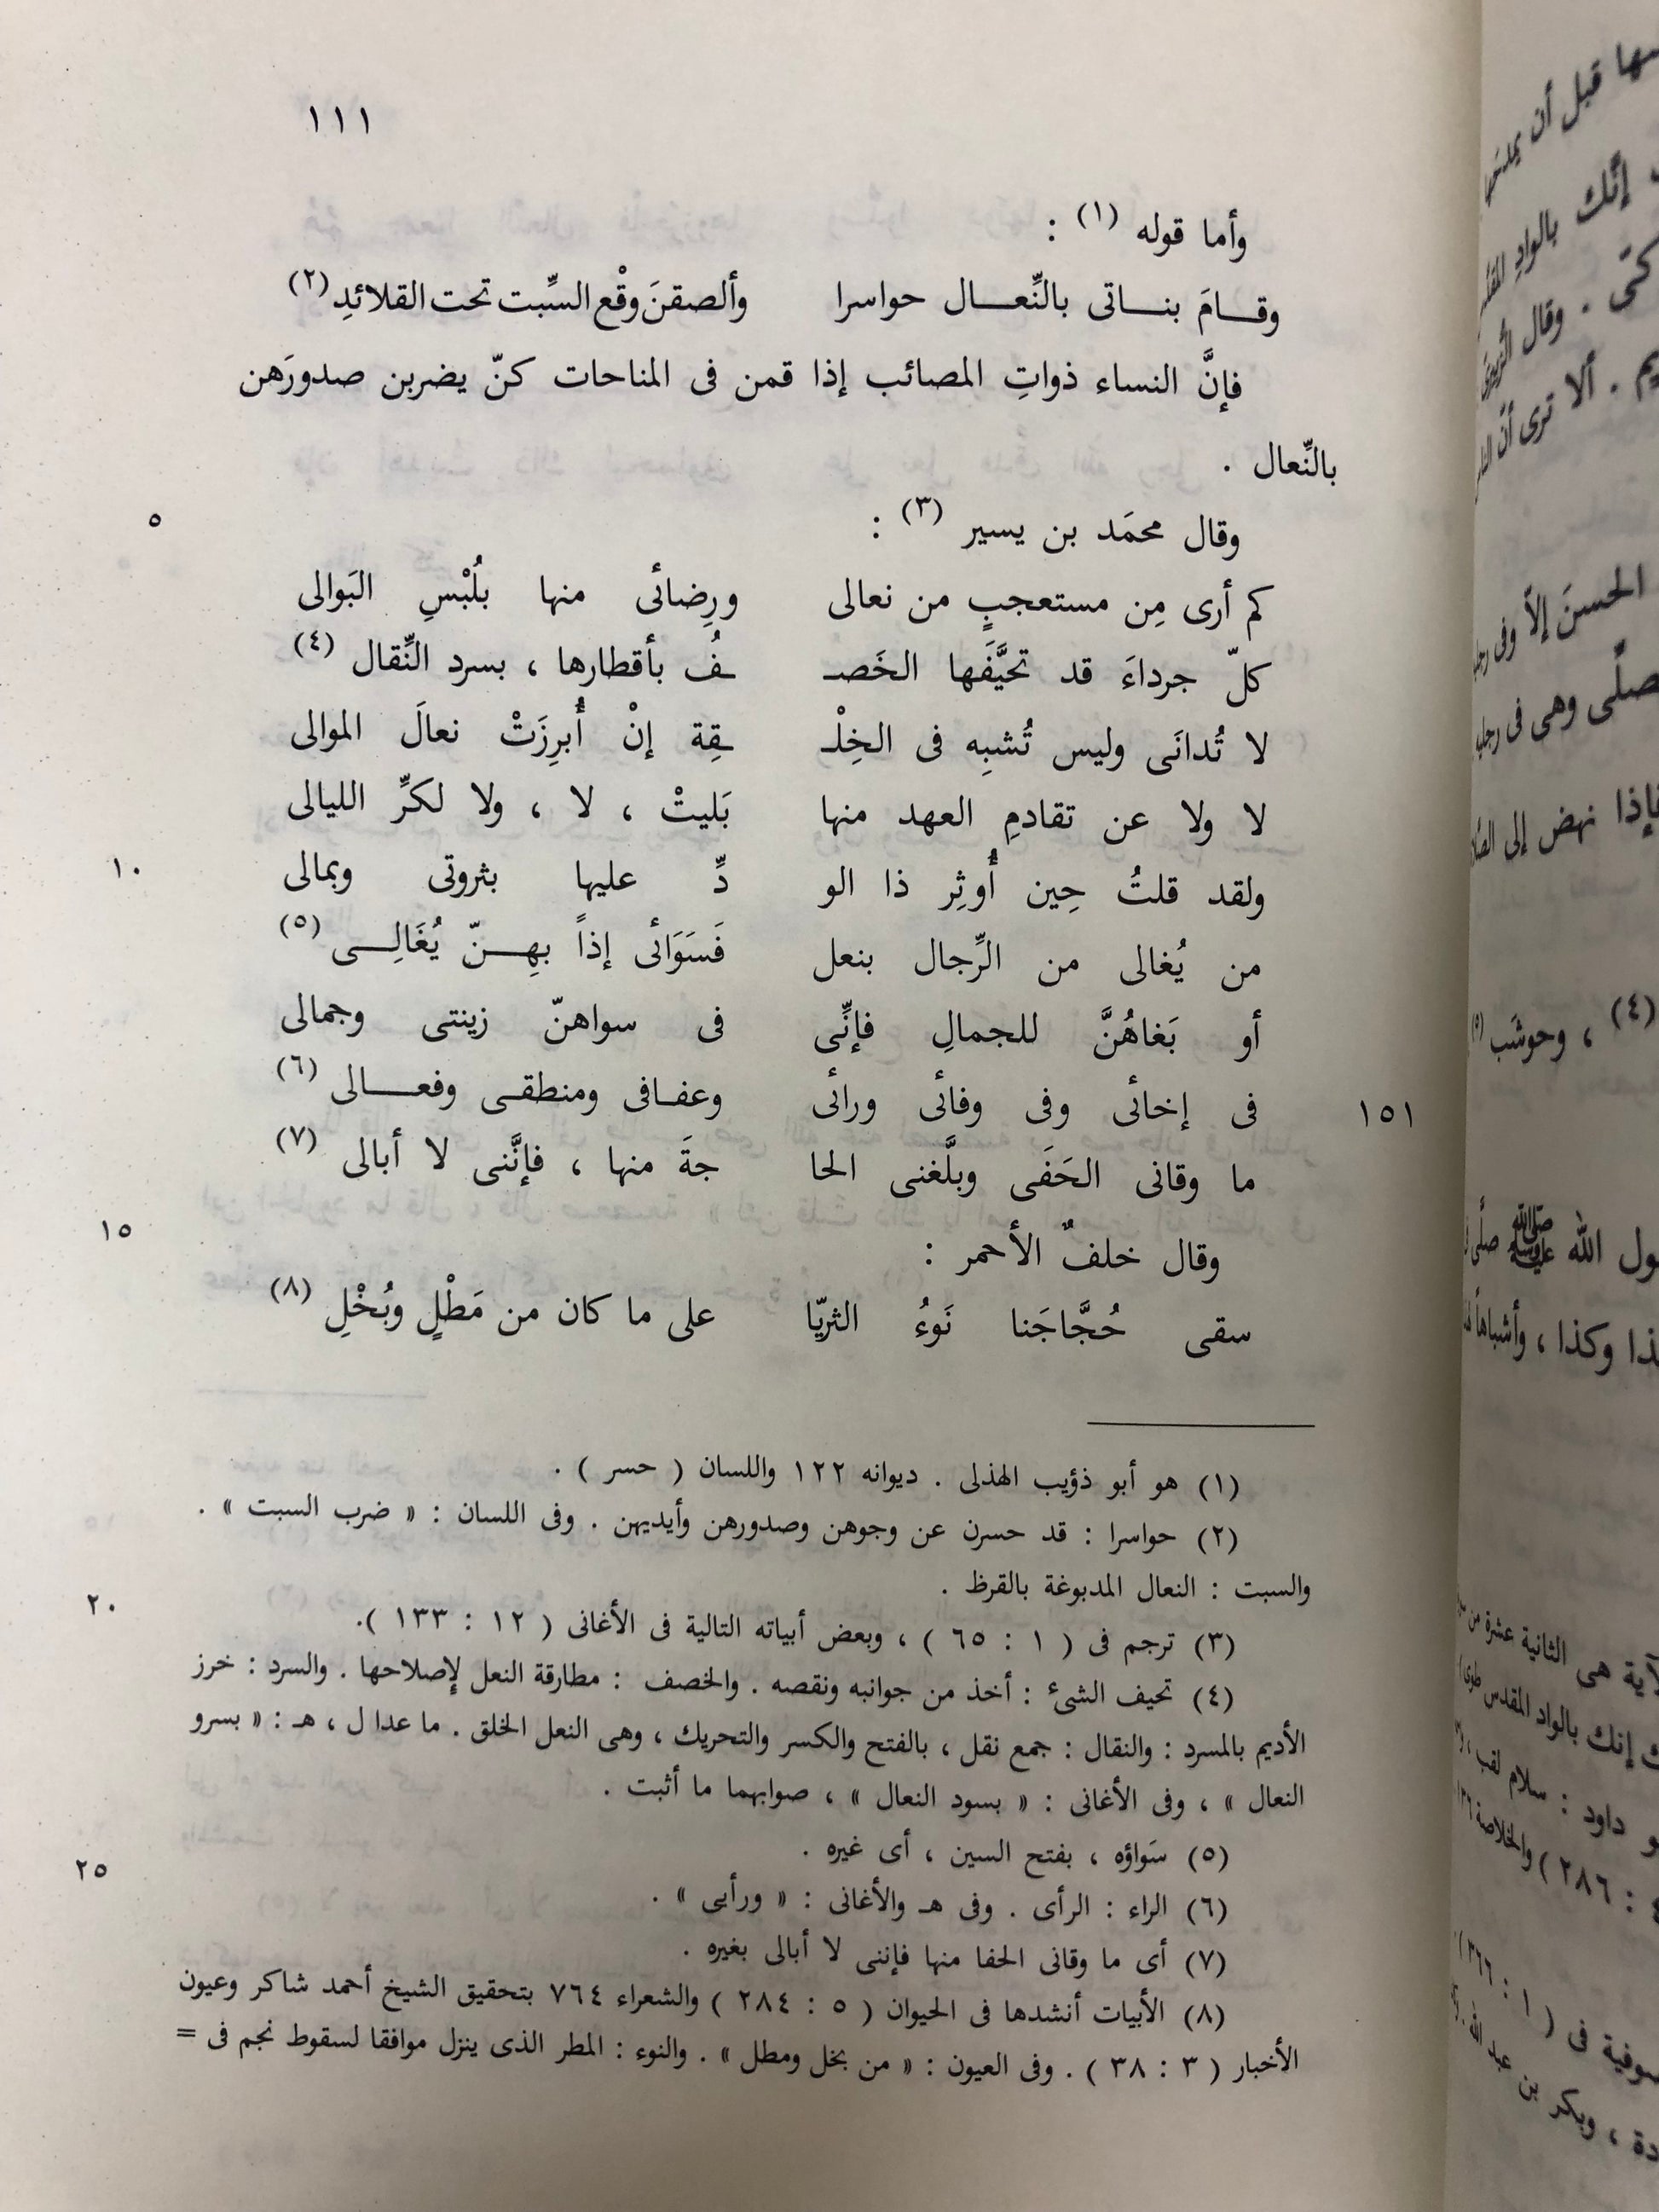 ١١١
وأما قوله (١) :
وقـــامَ بنـــاتى بالنِّعـــال حواسرا وألصقنَ وقْع السِّبت تحت القلائدِ (٢)
فإنَّ النساء ذواتِ المصائب إذا قمن فى المناحات كنّ يضربن صدورَهن
بالنِّعال .
وقال محمَد بن يسير (٣) : ٥
كم أرى مِن مستعجبٍ من نعالى ورِضائى منها بلُبْسِ البَوالى
كلّ جرداءَ قد تحيَّفَها الخَصـ ـفُ بأقطارها ، بسرد النِّقال (٤)
لا تُدانَى وليس تُشبِه فى الخِلْـ ـقِة إنْ أُبرِزَتْ نعالَ الموالى
لا ولا عن تقادمِ العهد منها بَليتْ ، لا ، ولا لكرِّ الليالى
ولقد قلتُ حِين أُوثِر ذا الو دِّ عليها بثروتى وبمالى ١٠
من يُغالى من الرِّجال بنعل فَسَوَائى إذاً بهِـــنّ يُغَالِـــى (٥)
أو بَغاهُنَّ للجمالِ فإنِّى فى سواهنّ زينتى وجمالى
١٥١ فى إخائى وفى وفائى ورائى وعفـافى ومنطقـى وفعـــالى (٦)
ما وقانى الحَفَى وبلَّغنى الحا جةَ منها ، فإنَّنى لا أبالى (٧)
وقال خلفٌ الأحمر : ١٥
سقى حُجَّاجَنا نَوءُ الثريّا على ما كان من مَطْلٍ وبُخْلِ (٨)
(١) هو أبو ذؤيب الهذلى . ديوانه ١٢٢ واللسان ( حسر ) .
(٢) حواسرا : قد حسرن عن وجوهن وصدورهن وأيديهن . وفى اللسان : « ضرب السبت » .
والسبت : النعال المدبوغة بالقرظ . ٢٠
(٣) ترجم فى ( ١ : ٦٥ ) ، وبعض أبياته التالية فى الأغانى ( ١٢ : ١٣٣ ).
(٤) تحيف الشىء : أخذ من جوانبه ونقصه . والخصف : مطارقة النعل لإصلاحها . والسرد : خرز
الأديم بالمسرد : والنقال : جمع نقل ، بالفتح والكسر والتحريك ، وهى النعل الخلق . ما عدا ل ، هـ : « بسرو
النعال » ، وفى الأغانى : « بسود النعال » ، صوابهما ما أثبت .
(٥) سَواؤه ، بفتح السين ، أى غيره . ٢٥
(٦) الراء : الرأى . وفى هـ والأغانى : « ورأيى » .
(٧) أى ما وقانى الحفا منها فإننى لا أبالى بغيره .
(٨) الأبيات أنشدها فى الحيوان ( ٥ : ٢٨٤ ) والشعراء ٧٦٤ بتحقيق الشيخ أحمد شاكر وعيون
الأخبار ( ٣ : ٣٨ ) . وفى العيون : « من بخل ومطل » . والنوء : المطر الذى ينزل موافقا لسقوط نجم فى =
سها قبل أن يمدحها
إنَّك بالوادِ
وقال
. ألا ترى أنّ
الحسنَ إلاّ وفى
صلّى وهى فى
فإذا نهض إلى
(٤) ، وحوشَب (٥)
ول الله ﷺ صلَّى
ذا وكذا ، وأشباهاً
الآية هى الثانية عشرة من
إنك بالواد المقدس طوى
و داود : سلام لقب
: ٢٨٦ ) والخلاصة
وفية فى ( ١ : ٢٦٦ )
، وبكر بن عبد الله